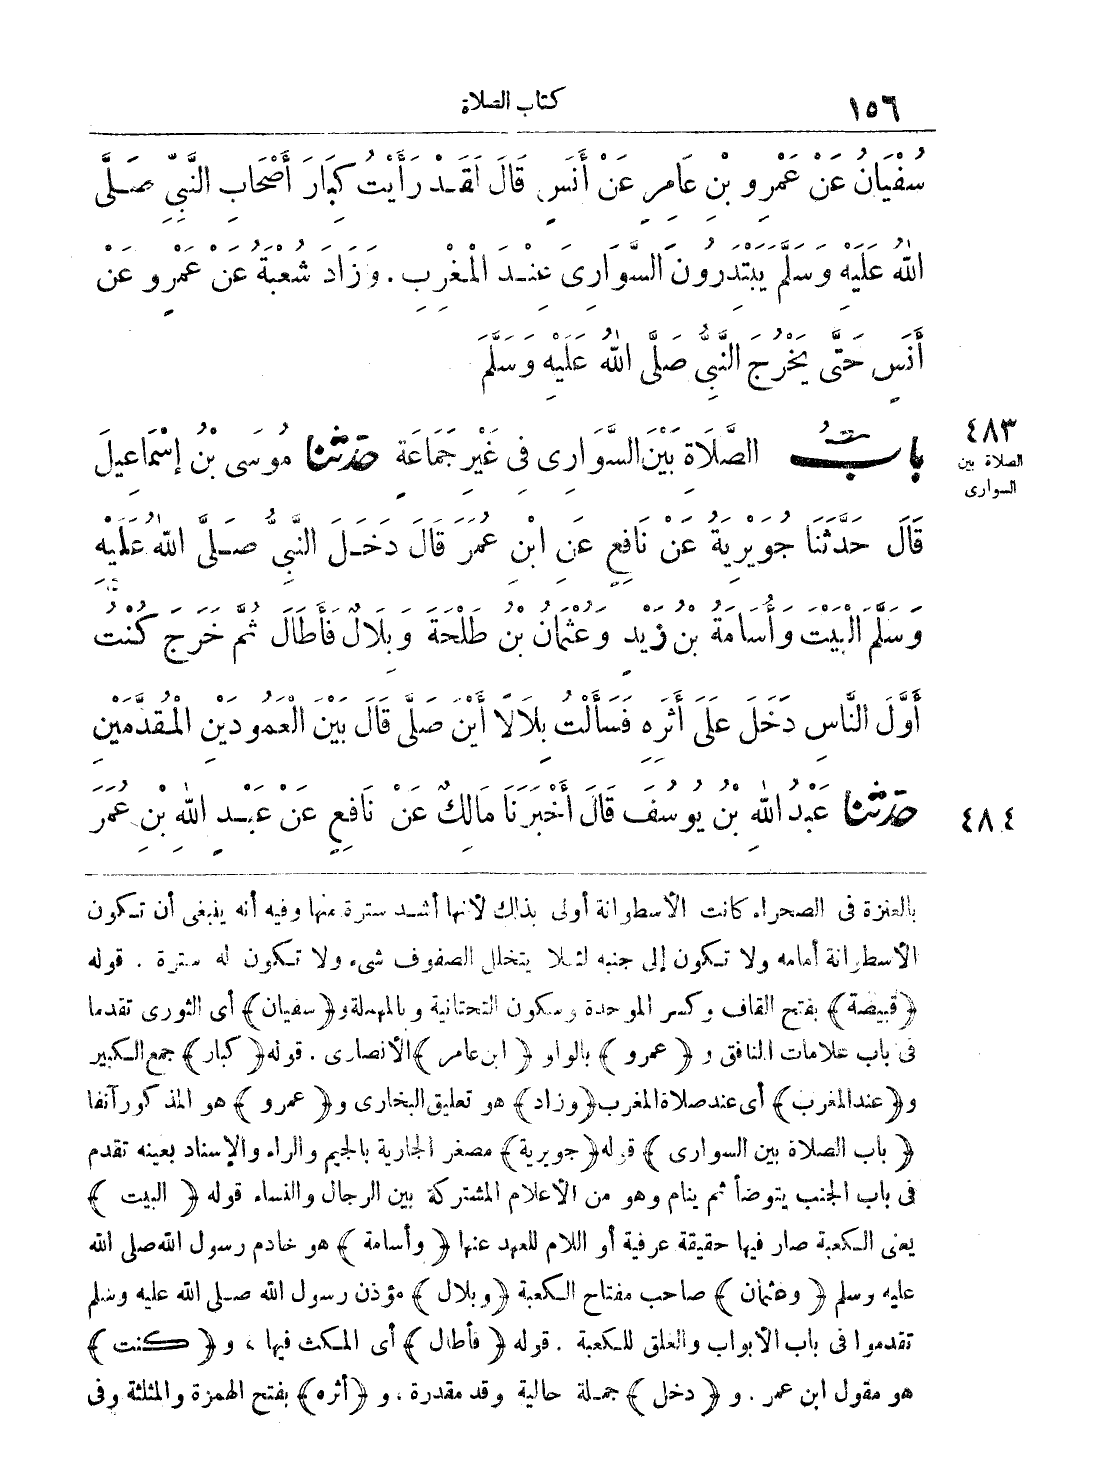 ١٥٦ كتاب الصلاة
سُفْيَانُ عَنْ عَمْرِو بْنِ عَامِرٍ عَنْ أَنَسٍ قَالَ لَقَدْ رَأَيْتُ كِبَارَ أَصْحَابِ النَّبِيِّ صَلَّى
اللهُ عَلَيْهِ وَسَلَّمَ يَبْتَدِرُونَ السَّوَارِىَ عِنْدَ الْمَغْرِبِ . وَزَادَ شُعْبَةُ عَنْ عَمْرٍو عَنْ
أَنَسٍ حَتَّى يَخْرُجَ النَّبِىُّ صَلَّى اللهُ عَلَيْهِ وَسَلَّمَ
٤٨٣
الصلاة بين
السوارى
بَابُ الصَّلَاةِ بَيْنَ السَّوَارِى فِى غَيْرِ جَمَاعَةٍ حَدَّثَنَا مُوسَى بْنُ إِسْمَاعِيلَ
قَالَ حَدَّثَنَا جُوَيْرِيَةُ عَنْ نَافِعٍ عَنِ ابْنِ عُمَرَ قَالَ دَخَلَ النَّبِىُّ صَلَّى اللهُ عَلَيْهِ
وَسَلَّمَ الْبَيْتَ وَأُسَامَةُ بْنُ زَيْدٍ وَعُثْمَانُ بْنُ طَلْحَةَ وَبِلَالٌ فَأَطَالَ ثُمَّ خَرَجَ كُنْتُ
أَوَّلَ النَّاسِ دَخَلَ عَلَى أَثَرِهِ فَسَأَلْتُ بِلَالًا أَيْنَ صَلَّى قَالَ بَيْنَ الْعَمُودَيْنِ الْمُقَدَّمَيْنِ
٤٨٤ حَدَّثَنَا عَبْدُ اللهِ بْنُ يُوسُفَ قَالَ أَخْبَرَنَا مَالِكٌ عَنْ نَافِعٍ عَنْ عَبْدِ اللهِ بْنِ عُمَرَ
بالعنزة فى الصحراء كانت الأسطوانة أولى بذلك لأنها أشد سترة منها وفيه أنه ينبغى أن تكون
الأسطوانة أمامه ولا تكون إلى جنبه لئلا يتخلل الصفوف شىء ولا تكون له سترة . قوله
﴿قبيصة﴾ بفتح القاف وكسر الموحدة وسكون التحتانية وبالمهملة و﴿سفيان﴾ أى الثورى تقدما
فى باب علامات المنافق و ﴿عمرو﴾ بالواو ﴿ابن عامر﴾ الأنصارى . قوله ﴿كبار﴾ جمع الكبير
و﴿عند المغرب﴾ أى عند صلاة المغرب ﴿وزاد﴾ هو تعليق البخارى و﴿عمرو﴾ هو المذكور آنفا
﴿باب الصلاة بين السوارى﴾ قوله ﴿جويرية﴾ مصغر الجارية بالجيم والراء والإسناد بعينه تقدم
فى باب الجنب يتوضأ ثم ينام وهو من الأعلام المشتركة بين الرجال والنساء قوله ﴿البيت﴾
يعنى الكعبة صار فيها حقيقة عرفية أو اللام للعهد عنها ﴿وأسامة﴾ هو خادم رسول الله صلى الله
عليه وسلم ﴿وعثمان﴾ صاحب مفتاح الكعبة ﴿وبلال﴾ مؤذن رسول الله صلى الله عليه وسلم
تقدموا فى باب الأبواب والغلق للكعبة . قوله ﴿فأطال﴾ أى المكث فيها ، و ﴿كنت﴾
هو مقول ابن عمر . و ﴿دخل﴾ جملة حالية وقد مقدرة . و ﴿أثره﴾ بفتح الهمزة والمثلثة وفى